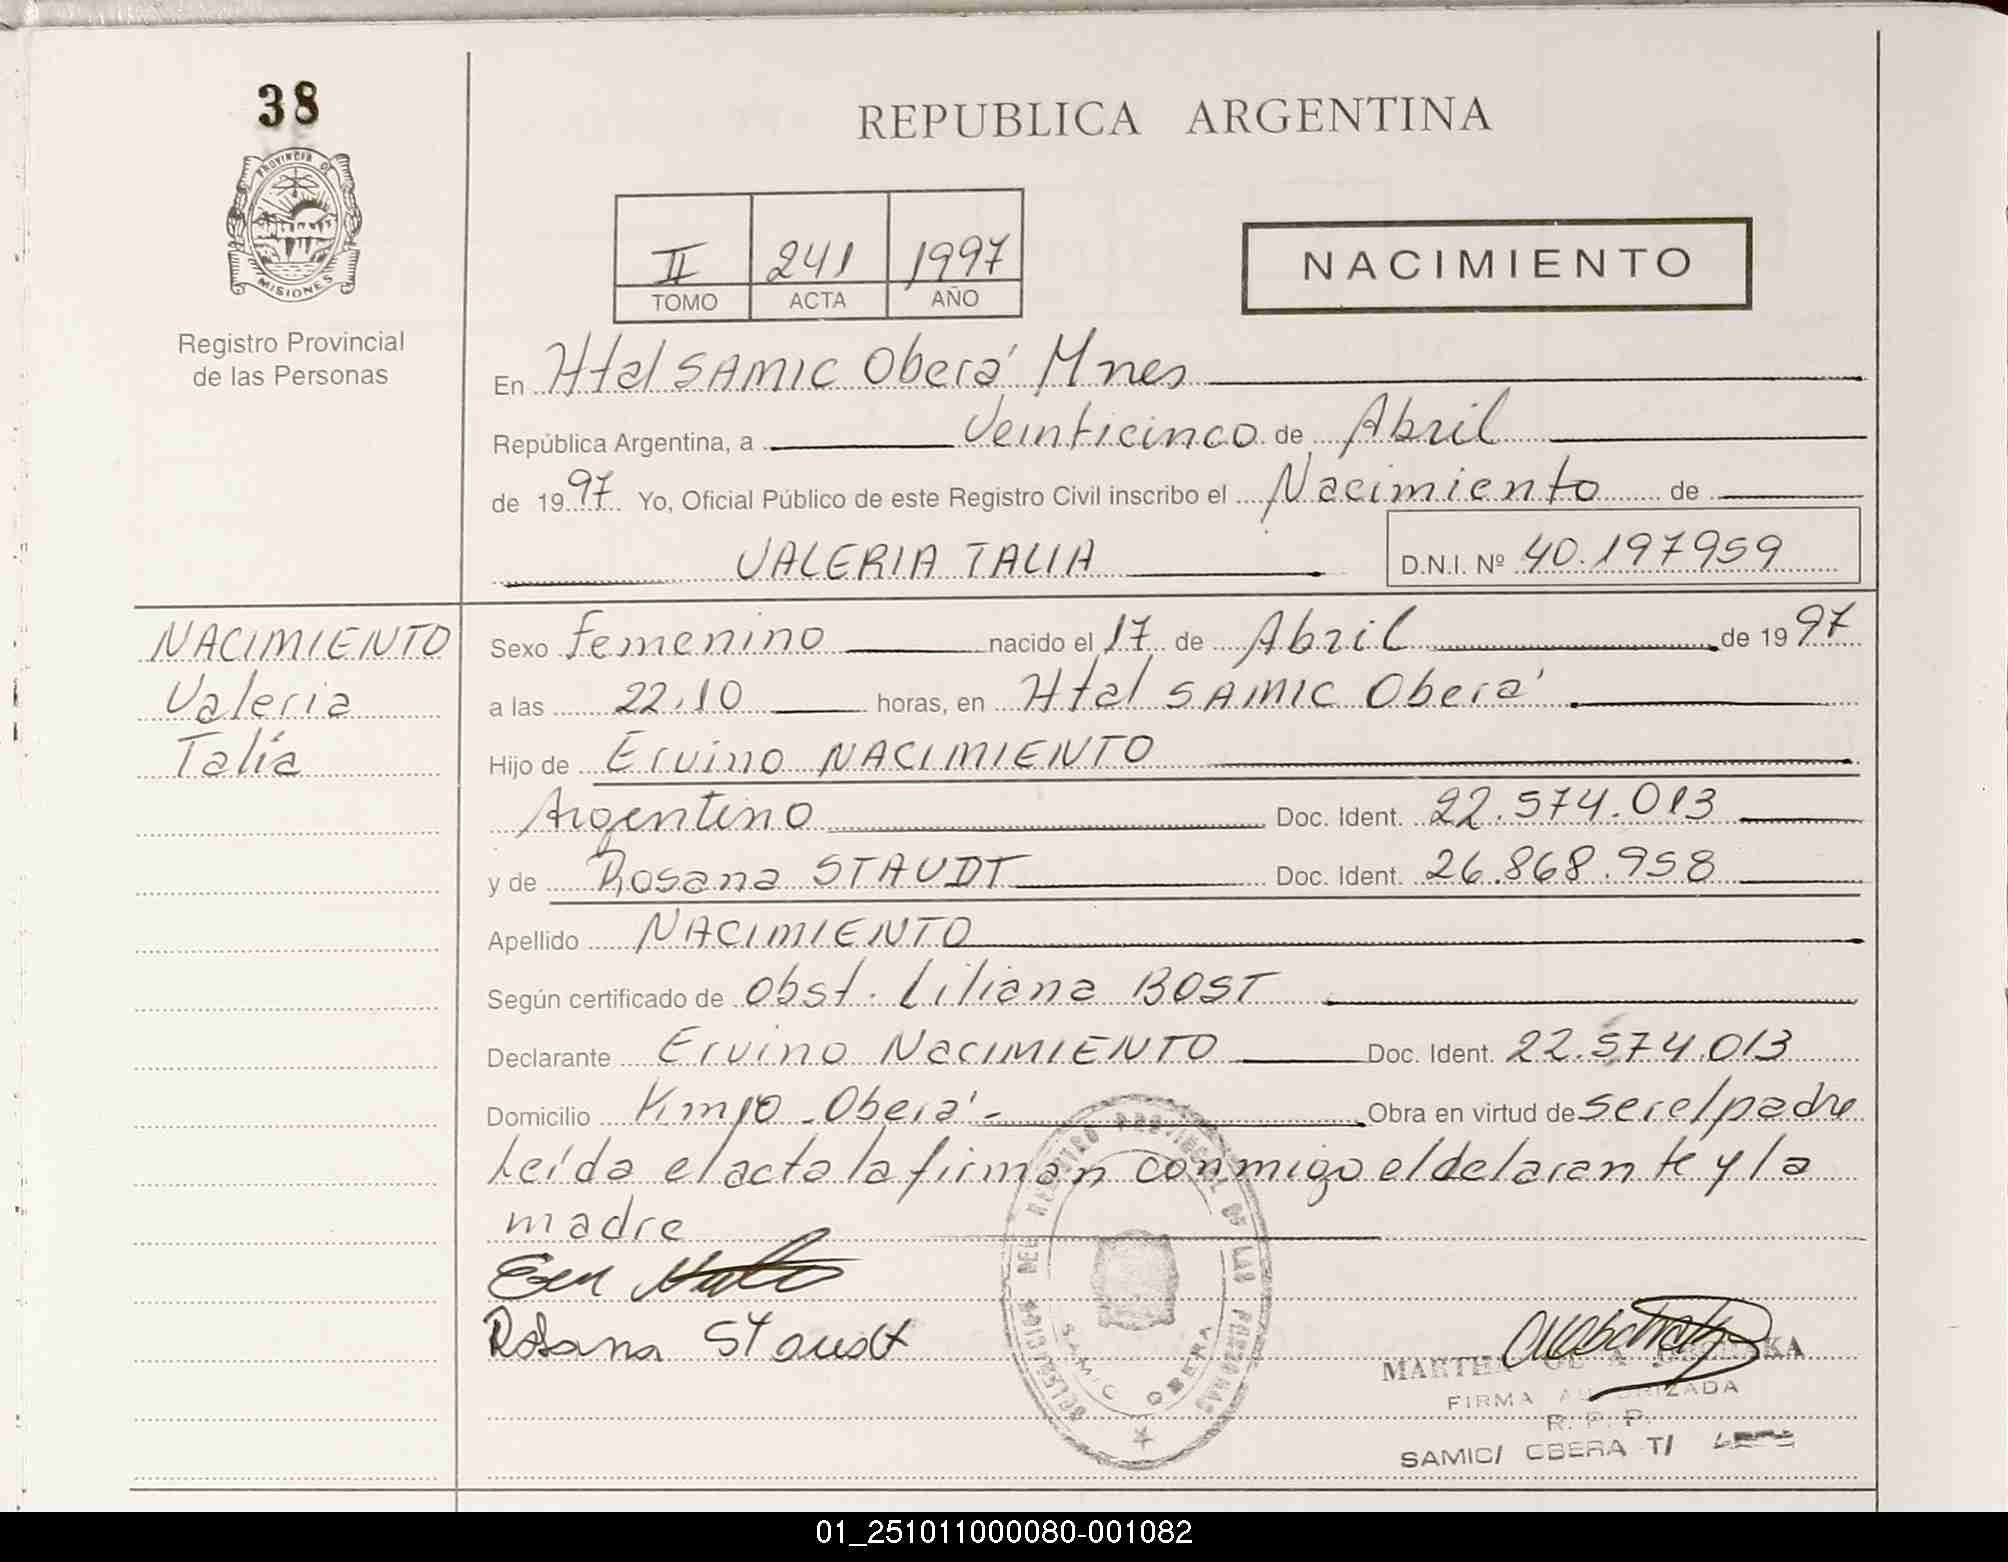 38
REPUBLICA ARGENTINA
PROVINCIA DE
MISIONES
Registro Provincial
de las Personas
II 241 1997
TOMO ACTA AÑO
NACIMIENTO
En Htal SAMIC Oberá Mnes
República Argentina, a Veinticinco de Abril
de 1997 Yo, Oficial Público de este Registro Civil inscribo el Nacimiento de
VALERIA TALIA D.N.I. Nº 40.197959
NACIMIENTO
Valeria
Talía
Sexo femenino nacido el 17 de Abril de 1997
a las 22,10 horas, en Htal SAMIC Oberá
Hijo de Ervino NACIMIENTO
Argentino Doc. Ident. 22.574.013
y de Rosana STAUDT Doc. Ident. 26.868.958
Apellido NACIMIENTO
Según certificado de Obst. Liliana BOST
Declarante Ervino NACIMIENTO Doc. Ident. 22.574.013
Domicilio Kmjo - Oberá - Obra en virtud de ser el padre
Leída el acta la firman conmigo el delarante y la
madre
Rosana Staudt
DELEGACION DEL REGISTRO PROVINCIAL DE LAS PERSONAS
SAMIC OBERA
MARTHA
FIRMA AUTORIZADA
R. P. P.
SAMIC/ OBERA T/
01_251011000080-001082